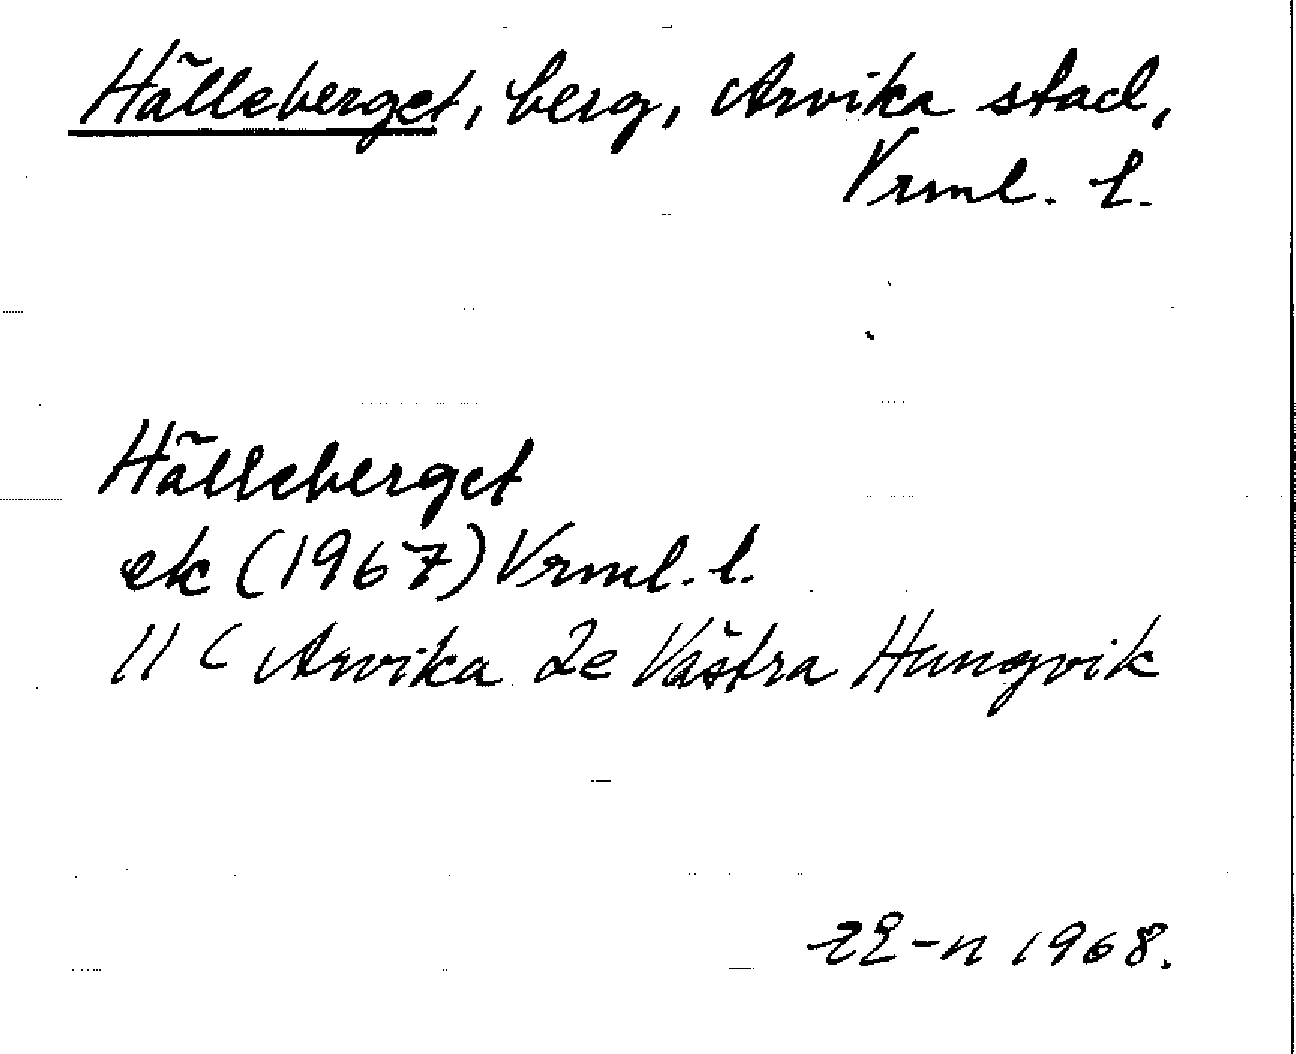 Hälleberget, berg, Arvika stad,
Vrml. l.
Hälleberget
ek (1967) Vrml. l.
11 C Arvika 2e Västra Hungvik
1968.